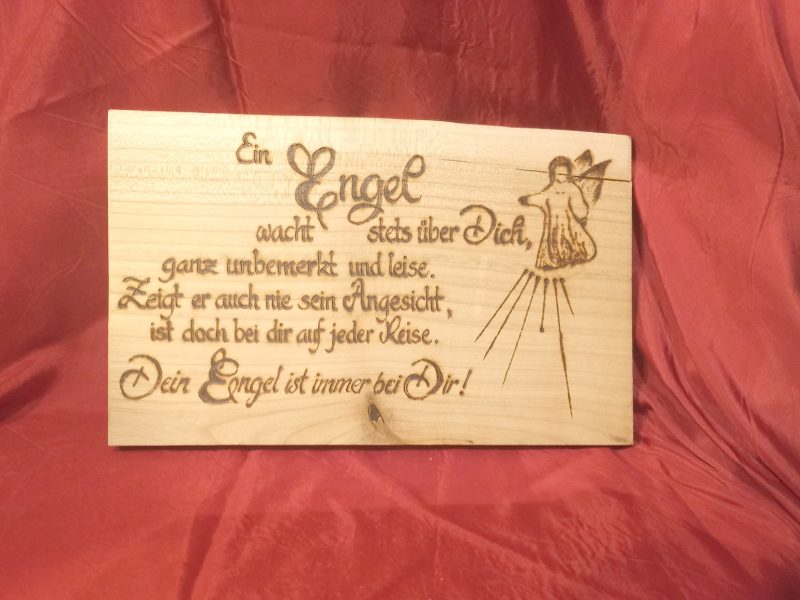 Ein Engel
wacht stets über Dich,
ganz unbemerkt und leise.
Zeigt er auch nie sein Angesicht,
ist doch bei dir auf jeder Reise.
Dein Engel ist immer bei Dir!